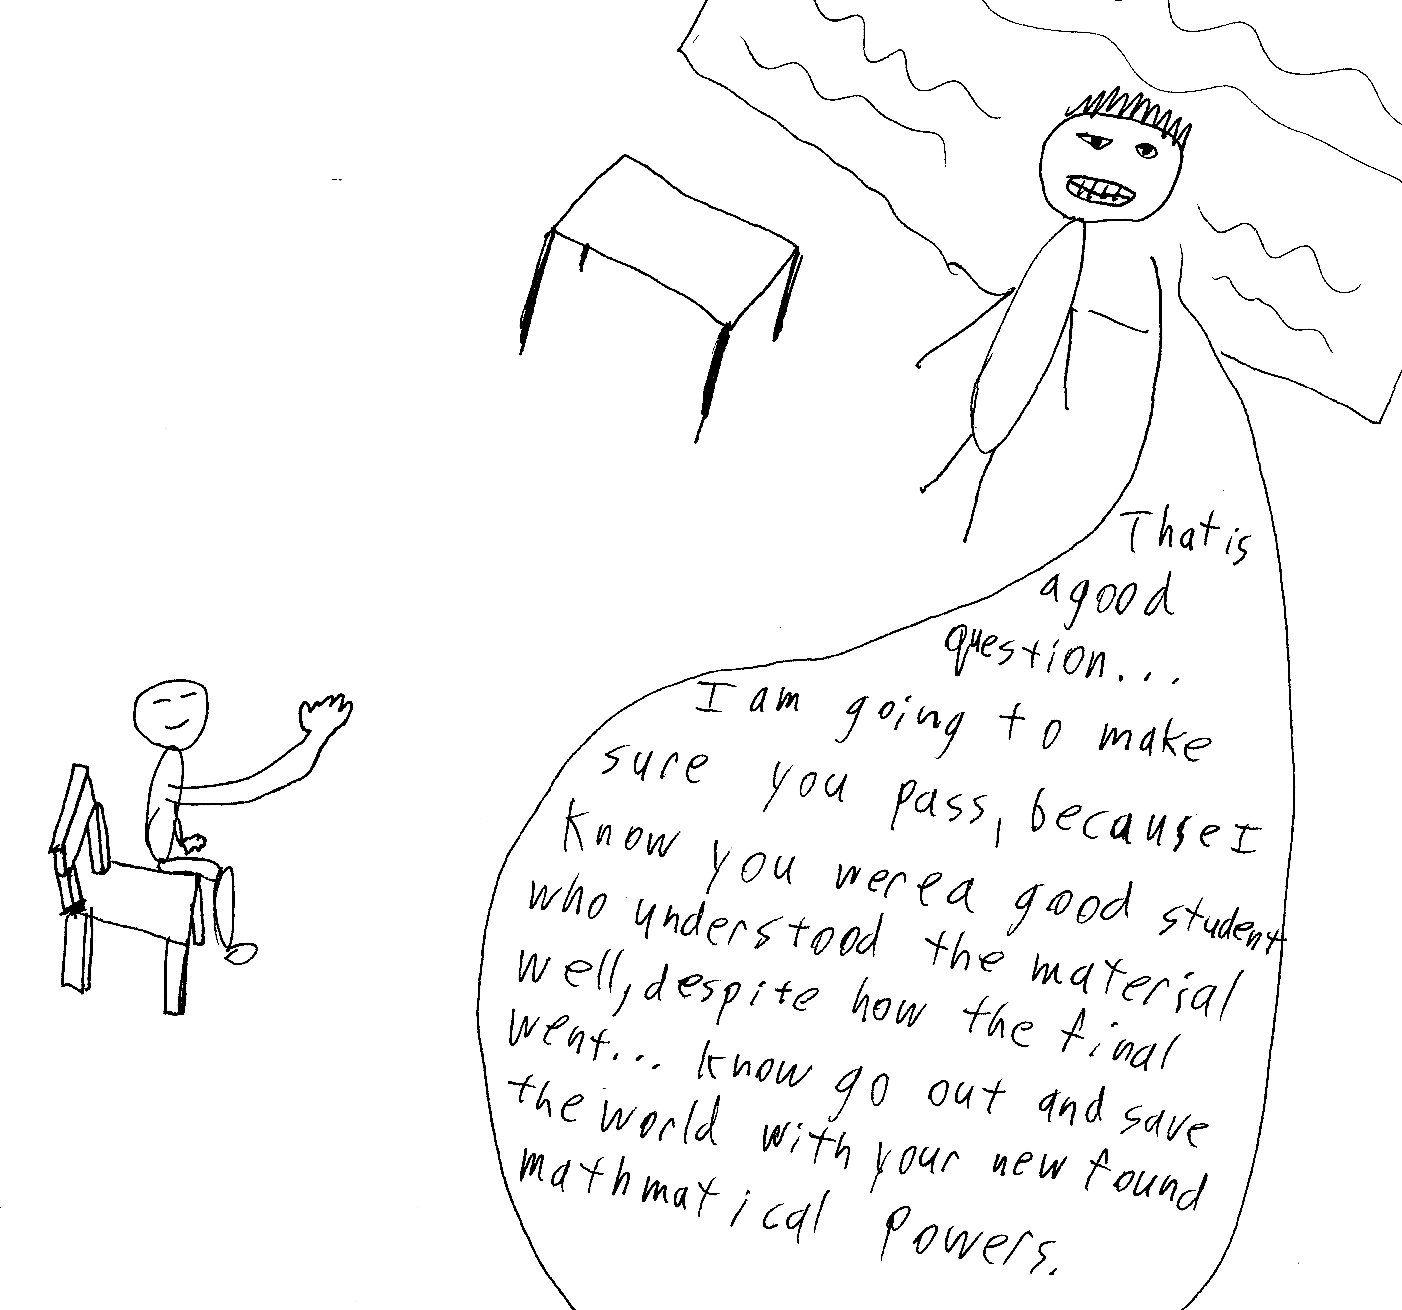 That is
a good
question...
I am going to make
sure you pass, because I
know you were a good student
who understood the material
well, despite how the final
went... know go out and save
the world with your new found
mathmatical powers.